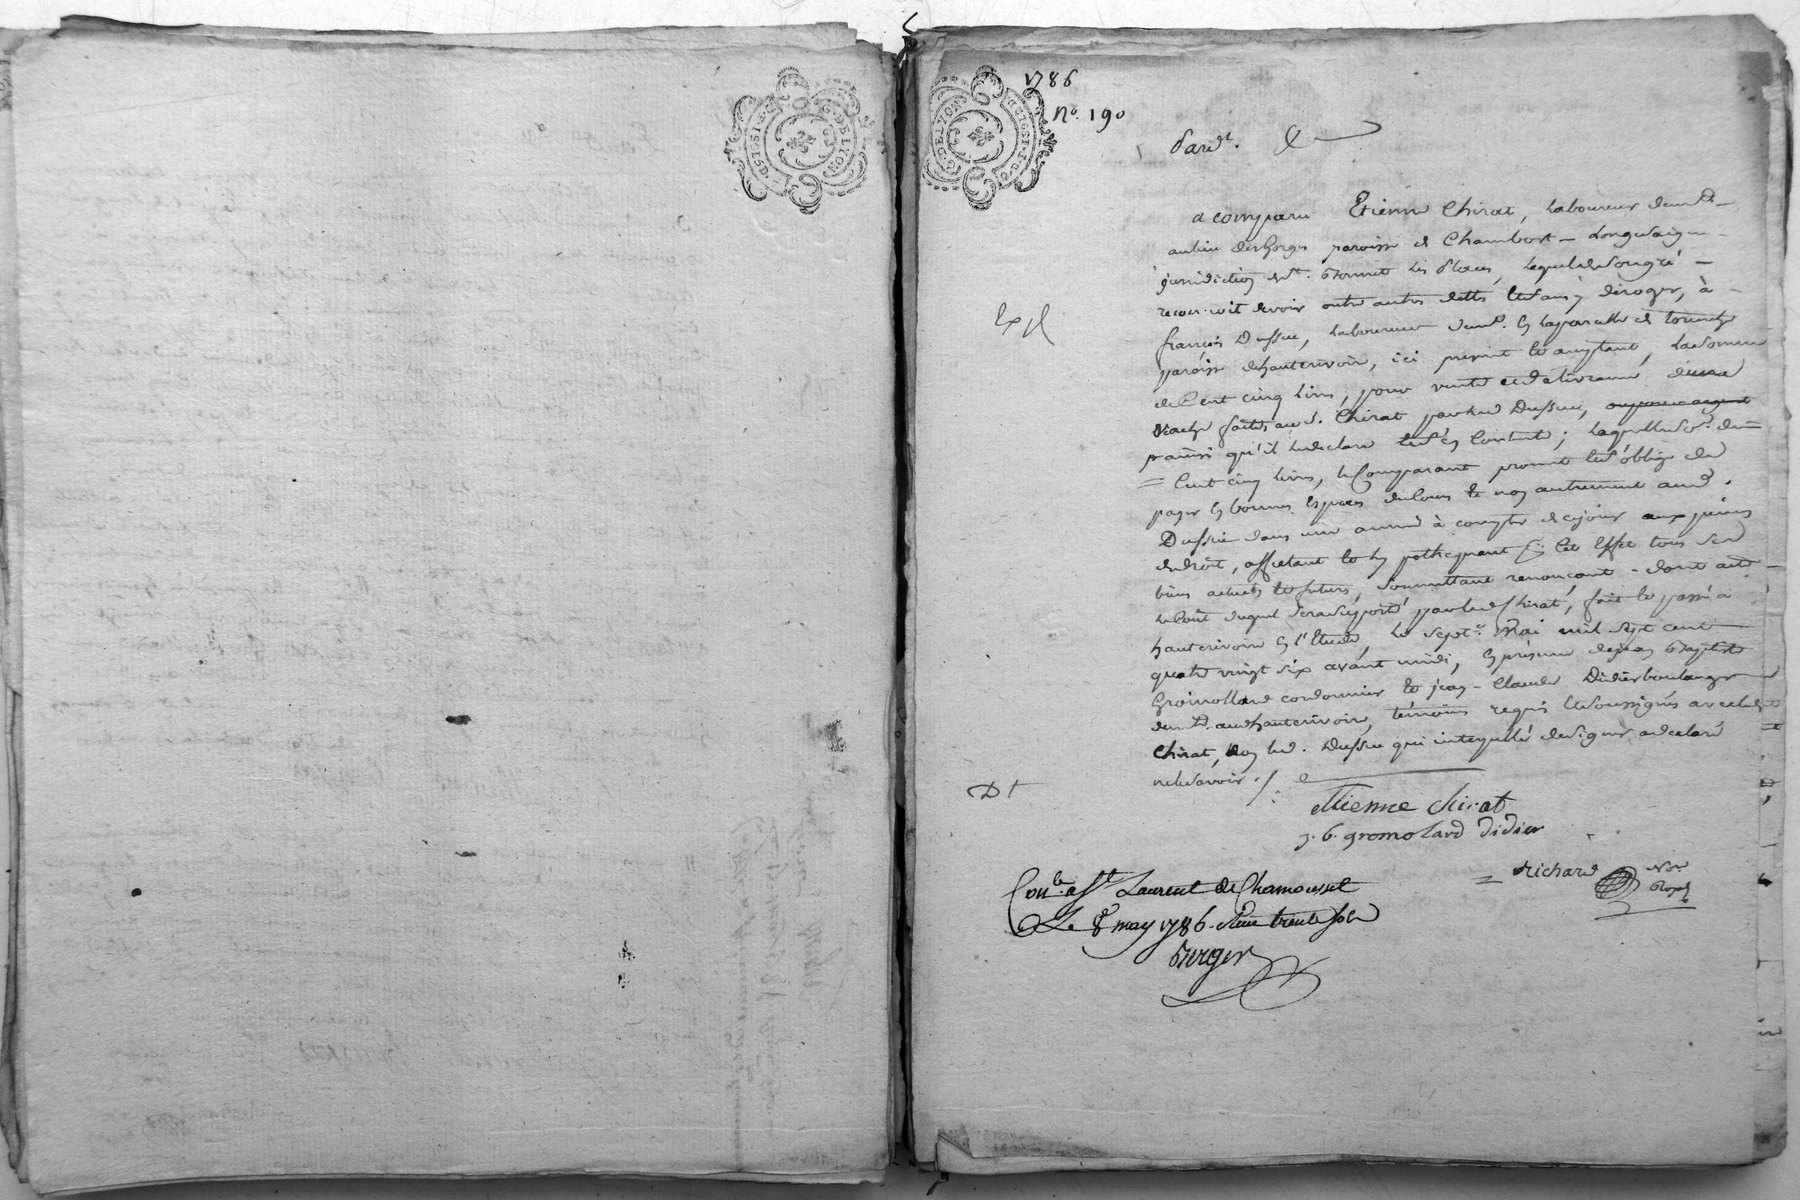 G. DE LYON
1786
No. 190
Pardt. &
a comparu Etienne Chirat, Laboureur demt.
au lieu des Gorges paroisse de Chambost-Longessaigne
juridiction de St. Bonnet les Places, lequel de son gré
reconnoit devoir outre autres dettes et sans y déroger, à
françois Dussuc, Laboureur demt. en la parcelle de
paroisse d'hauterivoire, ici présent et acceptant, la somme
de Cent cinq livres, pour vente et délivrance d'une
vache faites aud. Chirat par led. Dussuc,
ainsi qu'il le déclare et s'en contente; laquelle so.e de
Cent cinq livres, le Comparant promet et s'oblige de
payer en bonnes espèces de cours et non autrement aud.
Dussuc dans une année à compter de ce jour aux peines
de droit, affectant et hypothéquant à cet effet tous ses
biens actuels et futurs, soumettant renonçant - dont acte
le coût duquel sera supporté par led. Chirat, fait et passé à
hauterivoire en l'étude, le sept.e Mai mil sept cent
quatre vingt six avant midi, en présence de jean Baptiste
Gromollard cordonnier et jean-Claude Didier boulanger
demt. aud. hauterivoire, témoins requis et soussignés avec led.
Chirat, non led. Dussuc qui interpellé de signer a déclaré
ne le savoir ./.
Etienne chirat
j. b. gromolard didier
Richard Nore
Royal
Conle. a St Laurent de Chamousset
Le 8 may 1786. Reçu trente sols
Berger